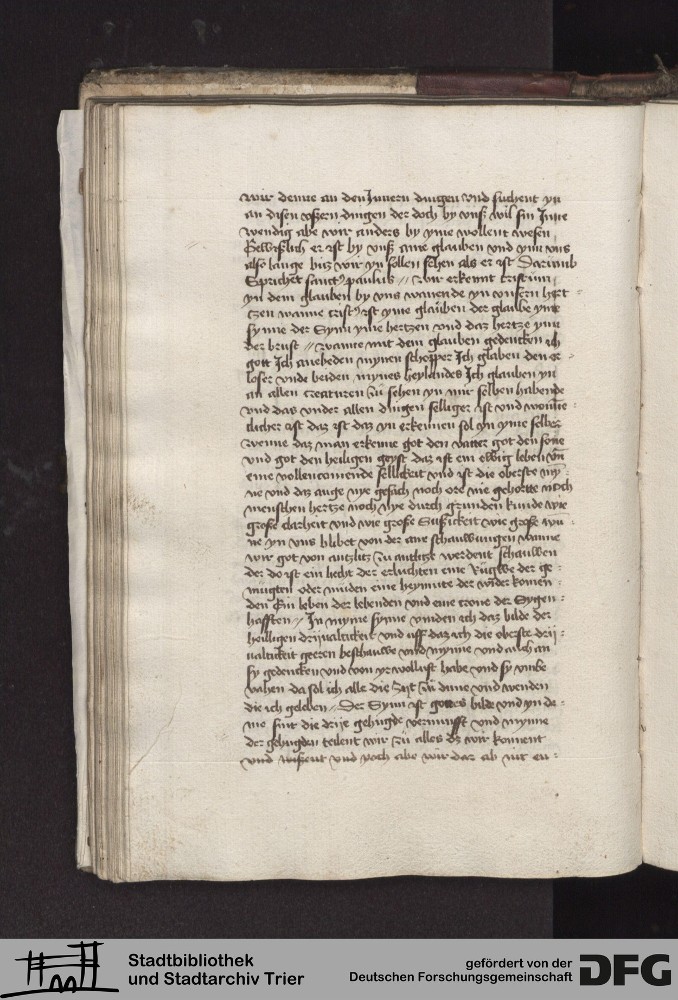 wir denne an den Innern dingen vnd suchent yn
an disen vßern dingen der doch by vnß wil sin Inne
wendig abe wir anders by yme wollent wesen
Gewißlich er ist by vnß ane glauben vnd ymi vns
also lange biß wir yn sollen sehen als er ist Darumb
Sprichet sanctus paulus // wir erkennt cristum
yn dem glauben by vns wanende yn vnsern hert-
czen wanne cristus ist yme glauben der glaube yme
synne der Synn yme hertzen vnd daz hertze ymi
der brust // wanne mit dem glauben gedencken ich
gott Ich anebeden mynen schopper Ich glaben den er-
loser vnde beiden mynes heylandes Ich glauben yn
an allen creaturen zu sehen yn mir selben habende
vnd das vnder allen dingen selliger ist vnd wonne-
clicher ist daz ist daz yn erkennen sol yn yme selber
wenne daz man erkenne got den vatter got den sone
vnd got den heiligen geyst daz ist ein ewig leben vn
eine vollencomende sellickeit vnd ist die oberste my-
ne vnd daz auge nye gesach noch ore nie gehortte noch
menschen hertze noch nye durch grunden kunde wie
große clarheit vnd wie große Sußickeit wie große wu-
ne yn vns blibet von der ane schauwungen wanne
wir got von antzlitz zu antlitze werdent schauwen
der do ist ein liecht der erluchten eine Rugwe der ge-
muigten oder muden eine heymute der wider komen-
den Ein leben der lebenden vnd eine crone der Sygen-
hafften // In myme synne vinden ich daz bilde der
heiligen drijualtickeit vnd uff daz ich die oberste drij-
ualtickeit geeren beschauwe vnd mynne vnd mich an
sy gedencken vnd von yr wollust habe vnd sy vmbe
vahen da sol ich alle die Zijt zu dune vnd wenden
die ich geleben // Der Synn ist gottes bilde vnd yn de-
me sint die drije gehugde vernunfft vnd mynne
der gehugden teilent wir zu alles dz wir koment
vnd wißent vnd noch abe wir daz ab nit en-
Stadtbibliothek
und Stadtarchiv Trier
gefördert von der
Deutschen Forschungsgemeinschaft
DFG